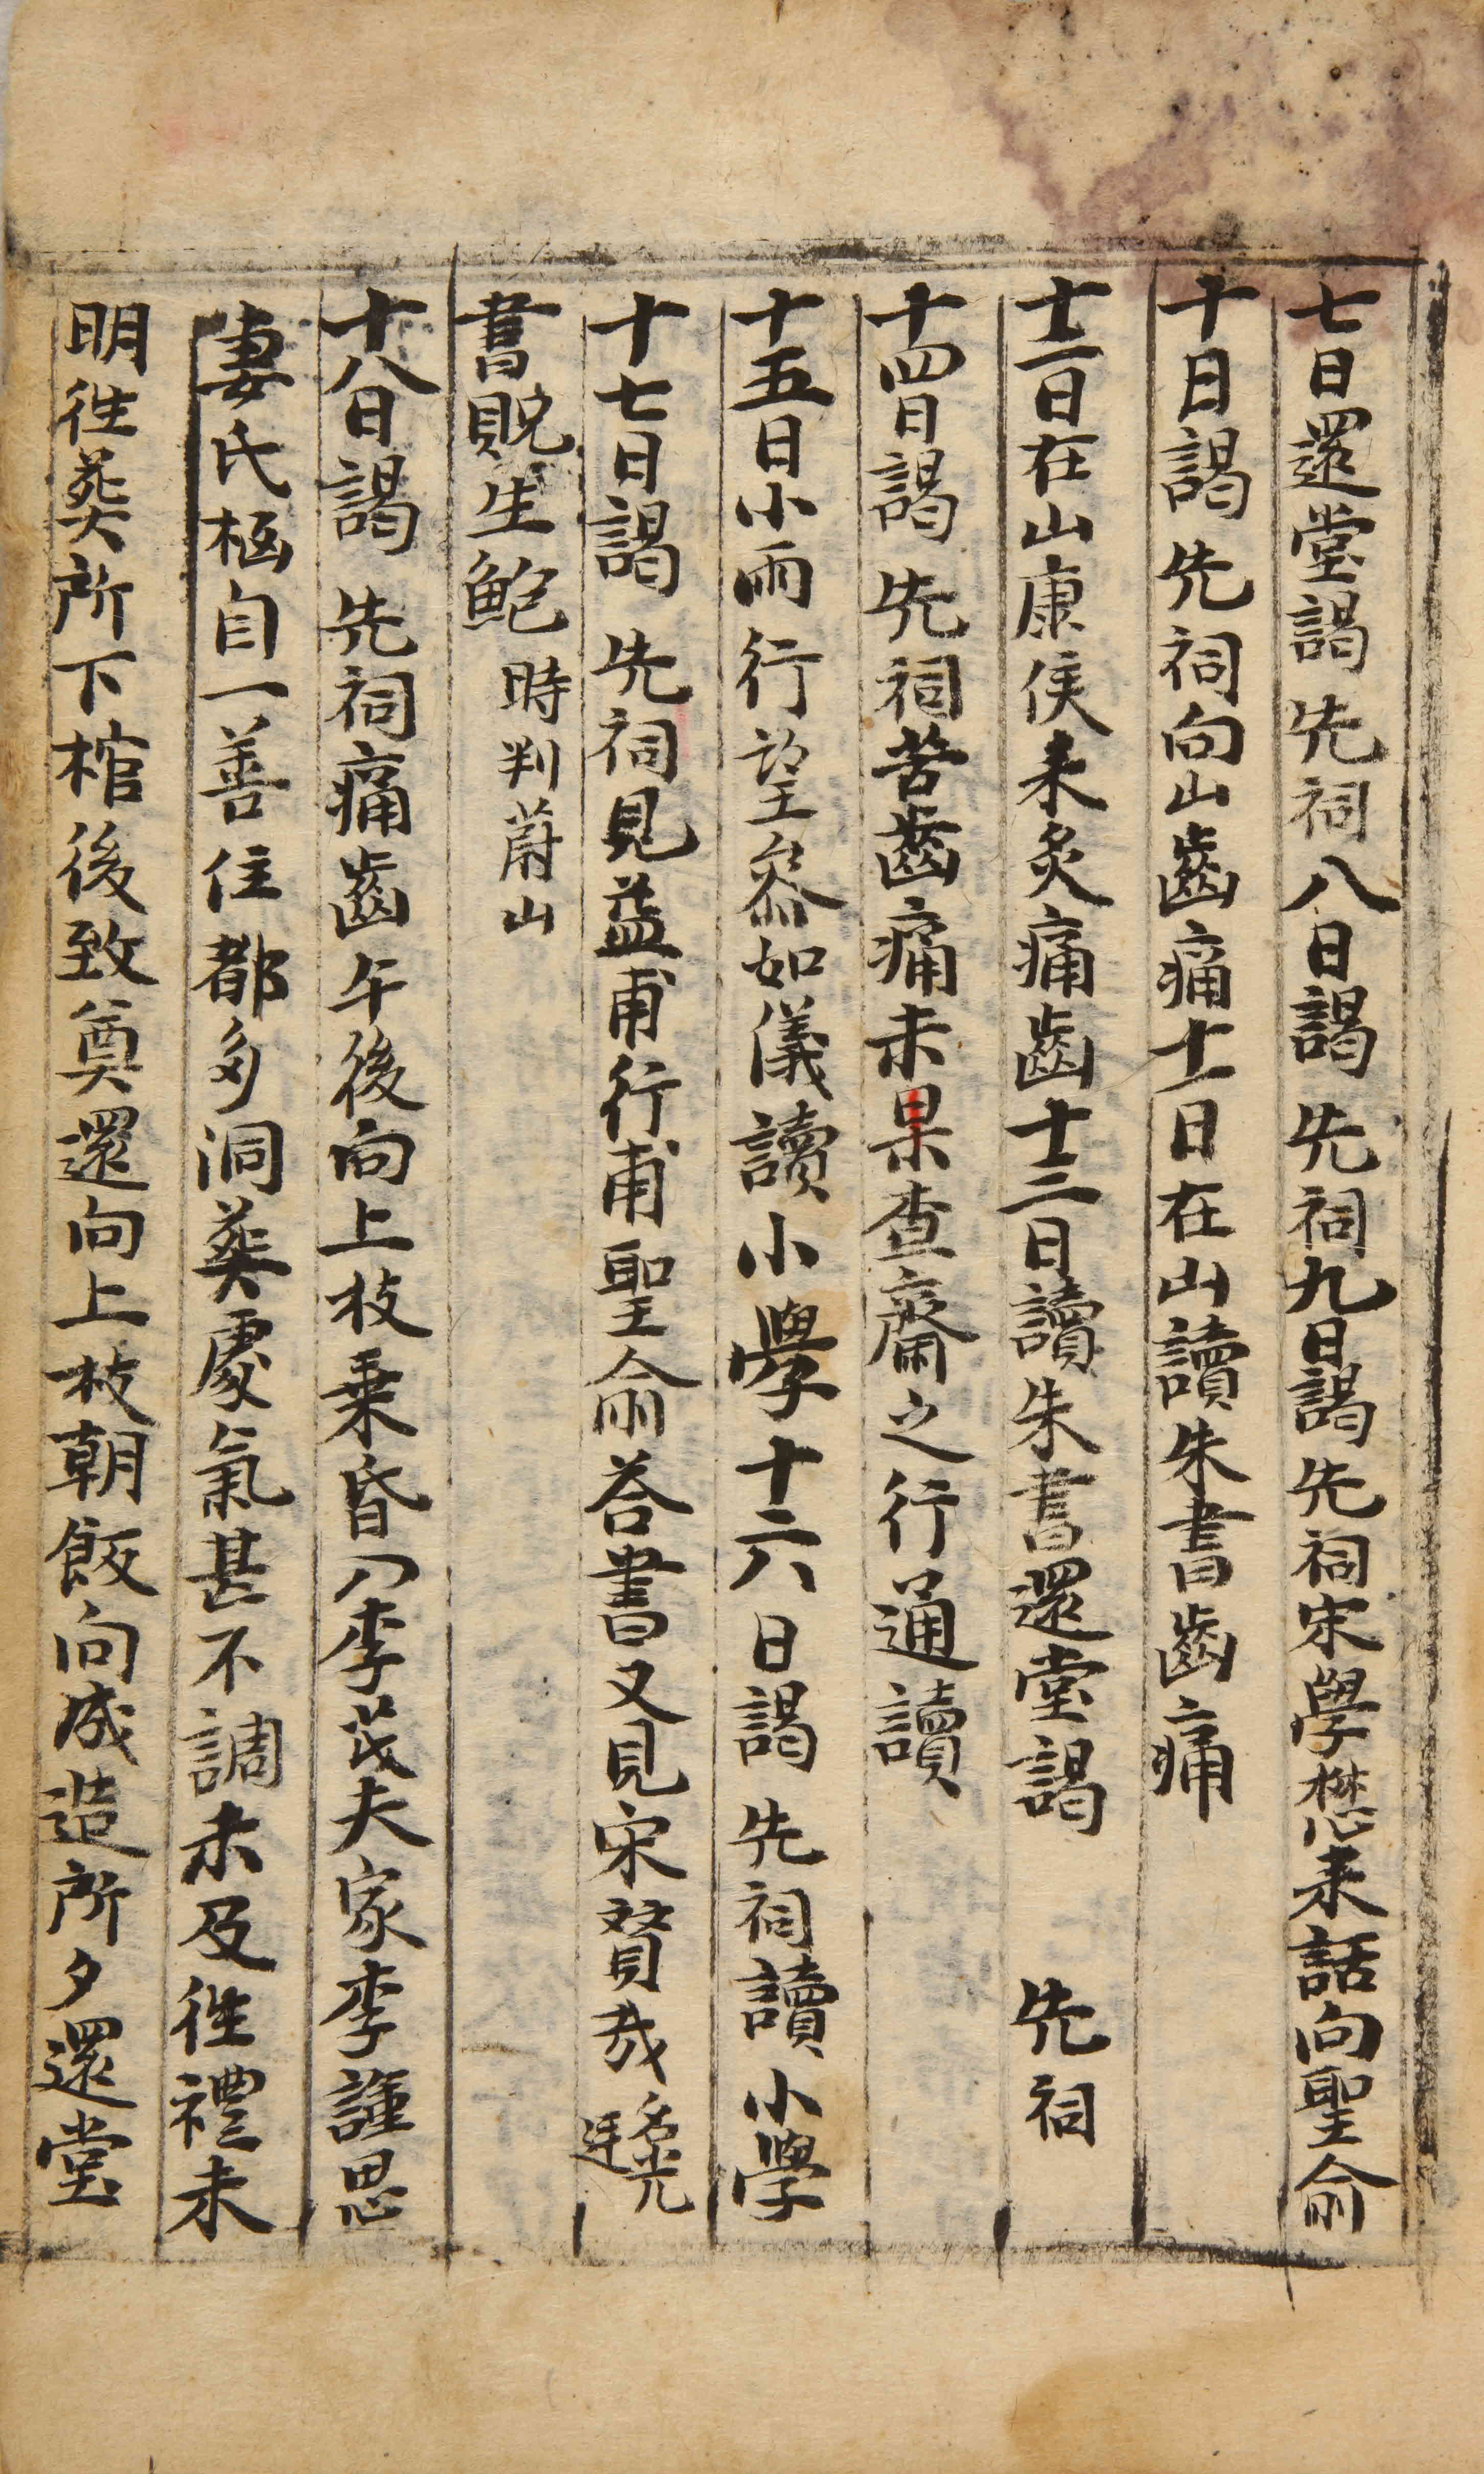 七日還堂謁 先祠八日謁 先祠九日謁先祠宋學懋來話向聖俞
十日謁 先祠向山齒痛十一日在山讀朱書齒痛
十二日在山康侯來灸痛齒十三日讀朱書還堂謁 先祠
十四日謁 先祠苦齒痛未果查齋之行通讀
十五日小雨行望叅如儀讀小學十六日謁 先祠讀小學
十七日謁 先祠見益甫行甫聖俞荅書又見宋賢哉
書貺生鮑 時判蔚山
十八日謁 先祠痛齒午後向上枝乗昏入李茂夫家李謹思
妻氏柩自一善住都多洞葬處氣甚不調未及徃禮未
明徃葬所下棺後致奠還向上枝朝飯向成造所夕還堂